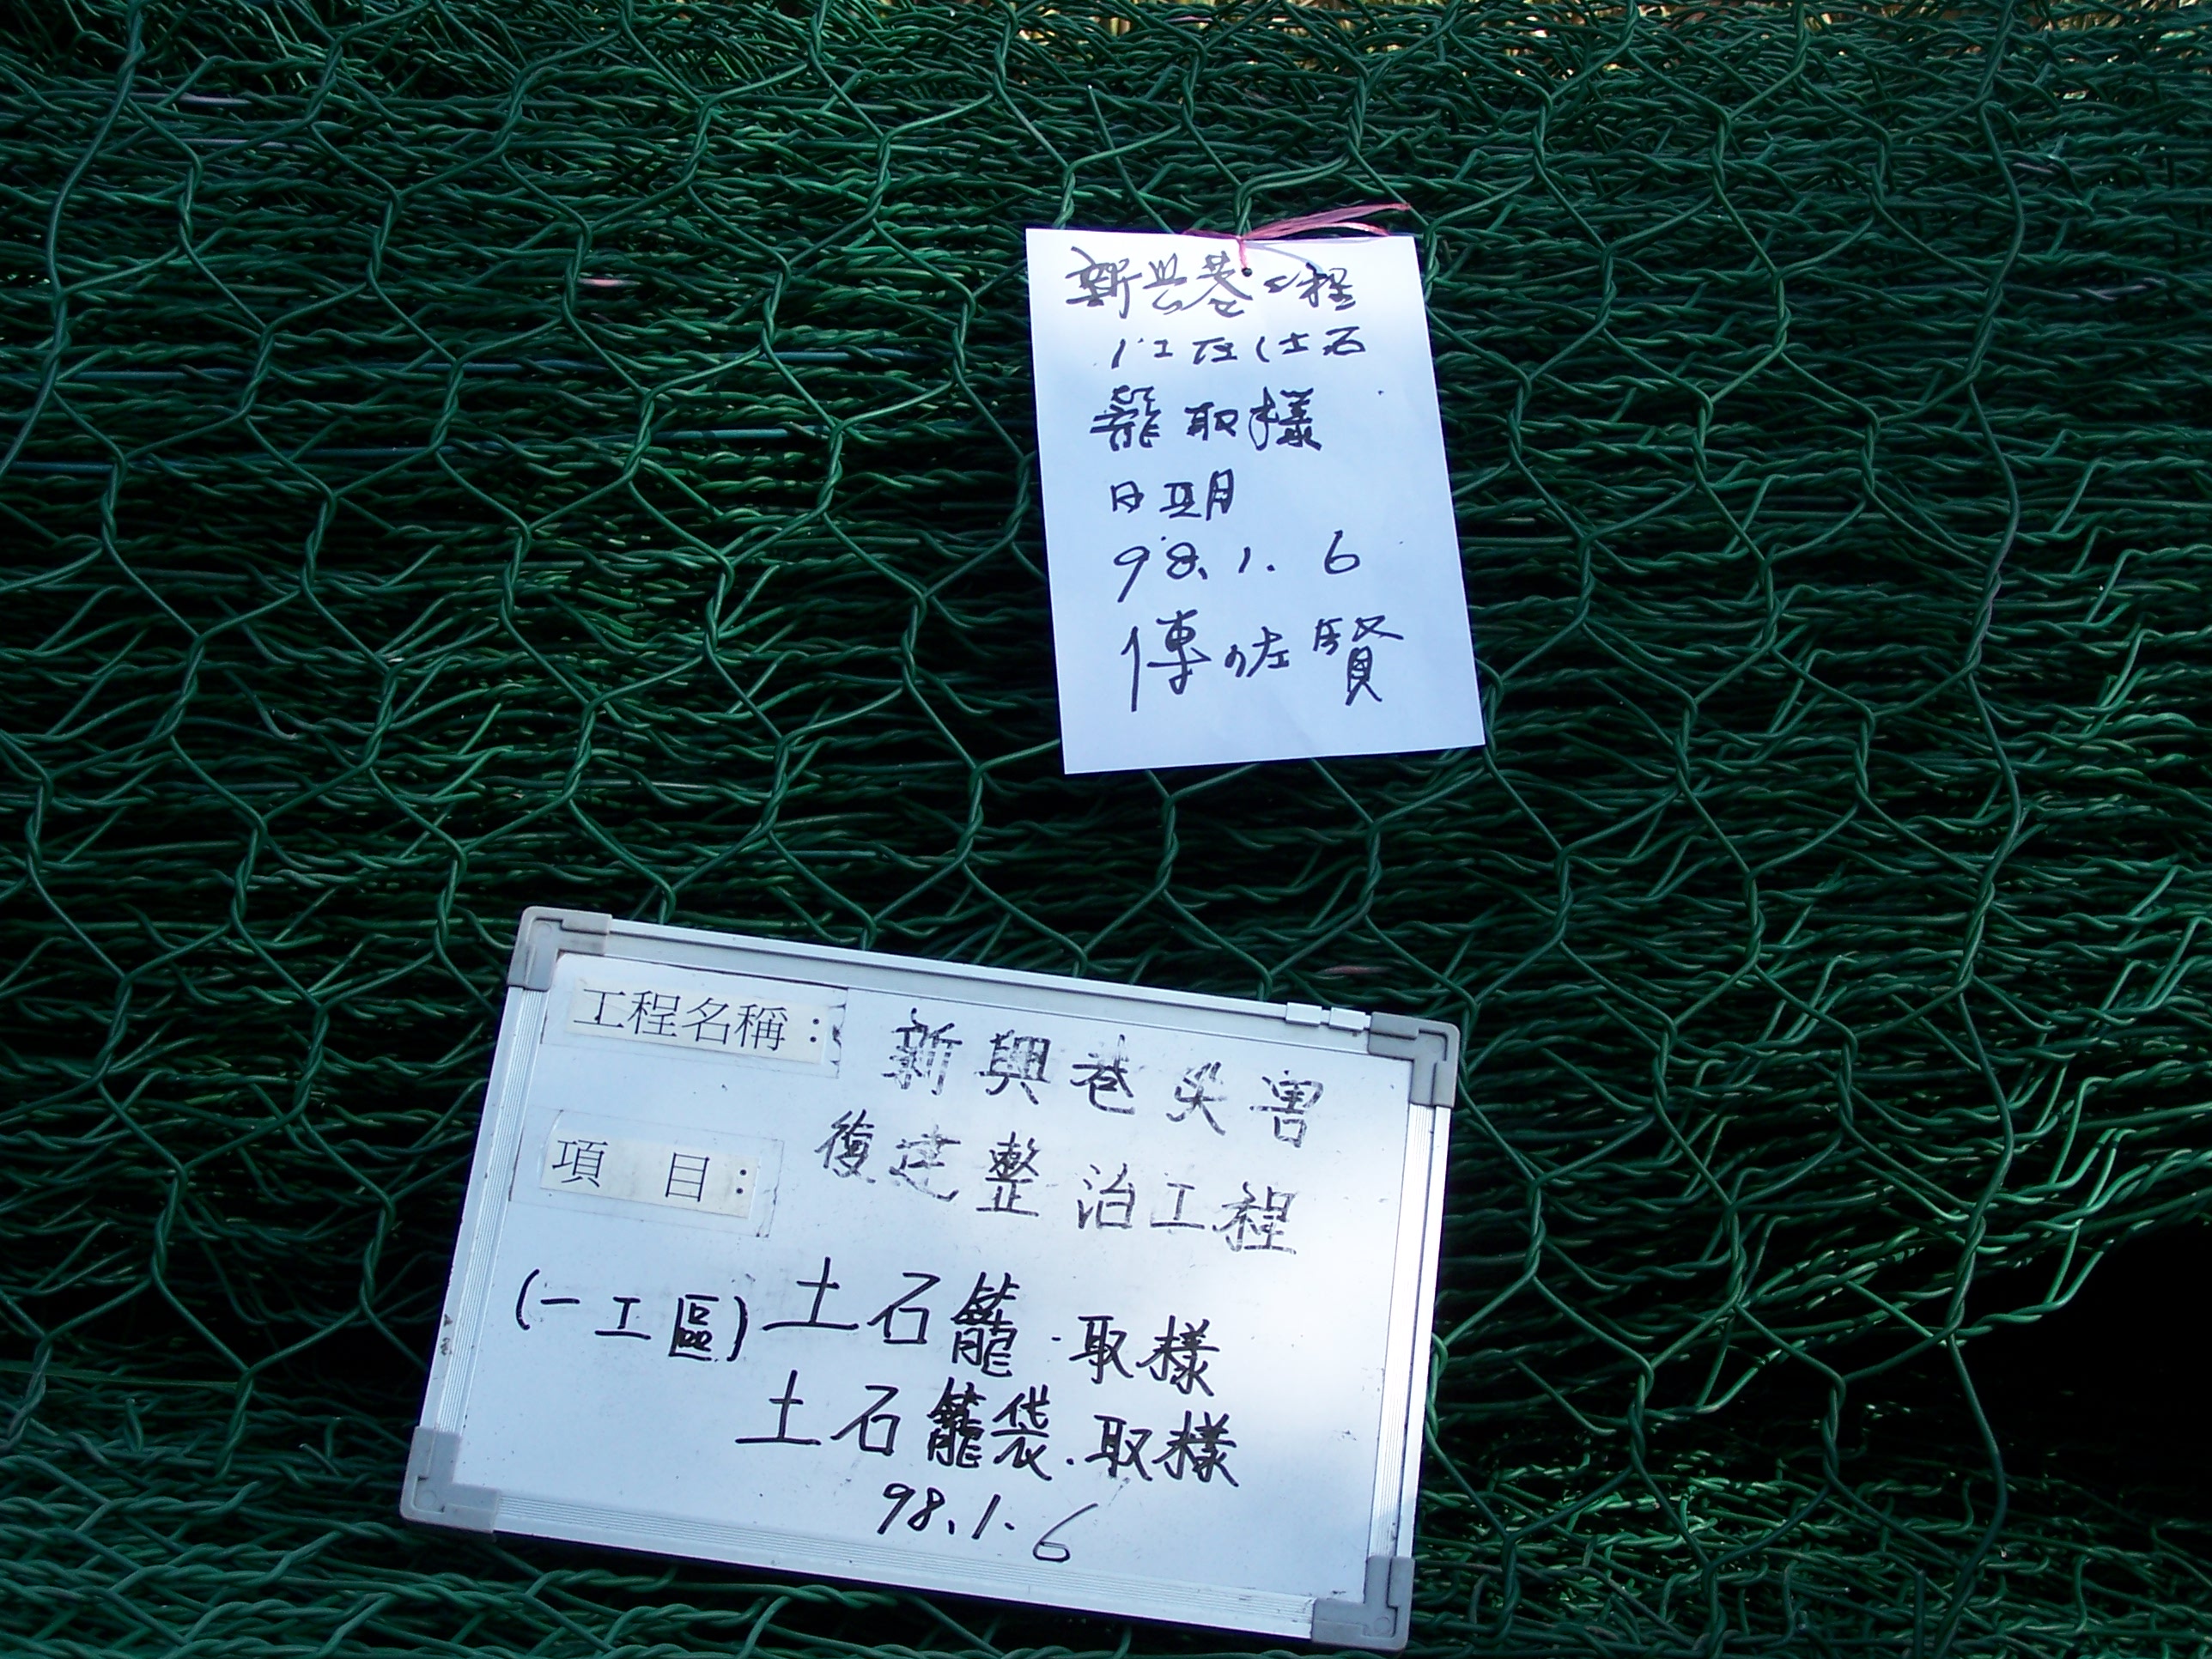 新興巷工程
1工区土石
籠取樣
日期
98.1.6
傅佐賢
工程名稱：新興巷災害
項　目：復建整治工程
(一工區)土石籠.取樣
土石籠袋.取樣
98.1.6